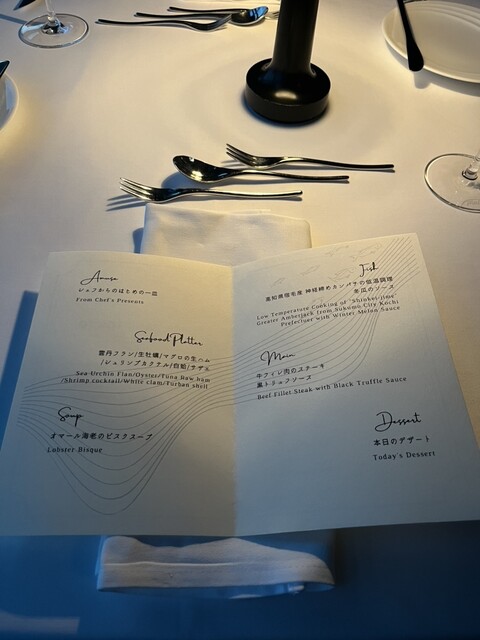 Amuse
シェフからのはじめの一皿
From Chef's Presents
Seafood Platter
雲丹フラン/生牡蠣/マグロの生ハム
/シュリンプカクテル/白蛤/サザエ
Sea Urchin Flan/Oyster/Tuna Raw ham
/Shrimp cocktail/White clam/Turban shell
Soup
オマール海老のビスクスープ
Lobster Bisque
Fish
高知県宿毛産 神経締めカンパチの低温調理
冬瓜のソース
Low Temperature Cooking of "Shinkei-jime"
Greater Amberjack from Sukumo City Kochi
Prefecture with Winter Melon Sauce
Main
牛フィレ肉のステーキ
黒トリュフソース
Beef Fillet Steak with Black Truffle Sauce
Dessert
本日のデザート
Today's Dessert